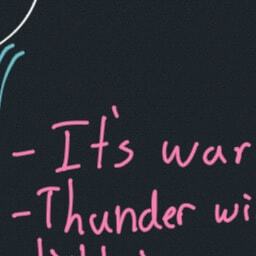 - It's war
- Thunder wi